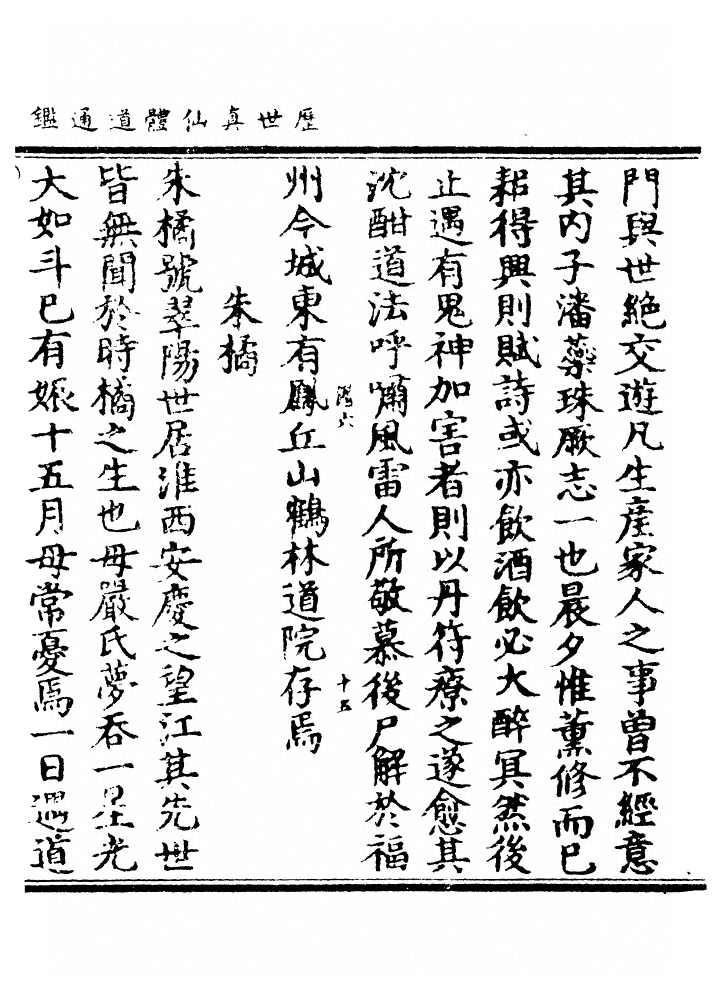 歷世真仙體道通鑑
門與世絕交遊凡生產家人之事曾不經意
其內子潘蘂珠厥志一也晨夕惟薰修而已
耜得興則賦詩或亦飲酒飲必大醉冥然後
止遇有鬼神加害者則以丹符療之遂愈其
沈酣道法呼嘯風雷人所敬慕後尸解於福
州今城東有鳳丘山鶴林道院存焉
朱橘
朱橘號翠陽世居淮西安慶之望江其先世
皆無聞於時橘之生也母嚴氏夢吞一星光
大如斗已有娠十五月母常憂焉一日遇道
十五